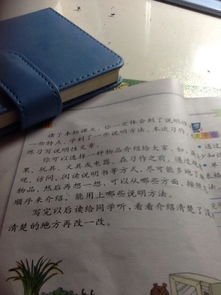 读了本组课文，你一定体会到了说明文
一些特点，学到了一些说明方法。本次习作，
练习写说明性文章。
你可以选择一种物品介绍给大家，如，蔬
果、玩具、文具或电器。在习作之前，通过
观、访问、阅读说明书等方式，尽可能多地了
物品，然后再想一想，可以从哪些方面、按照
顺序来介绍，能用上哪些说明方法。
写完以后读给同学听，看看介绍清楚了没
清楚的地方再改一改。